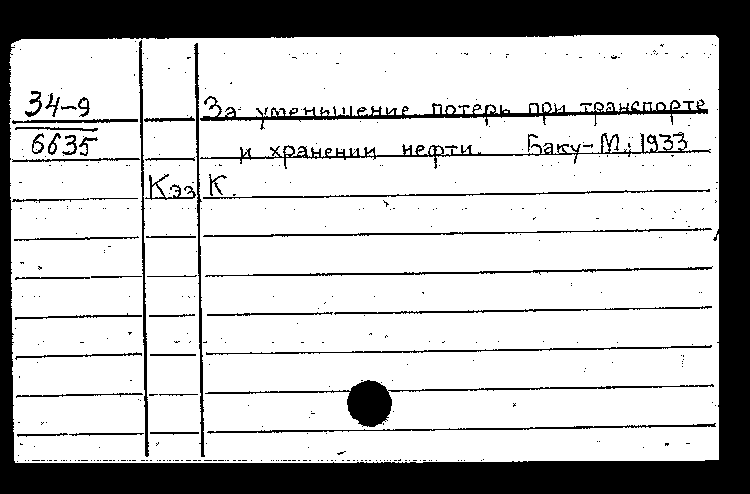 34-9 За уменьшение потерь при транспорте
6635 и хранении нефти. Баку-М., 1933
Кэз К.